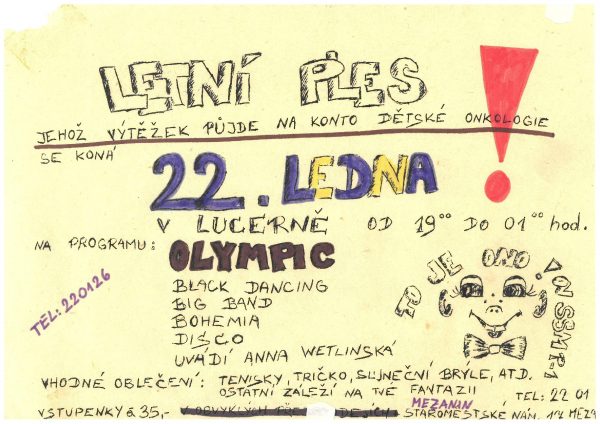 LETNÍ PLES !
JEHOŽ VÝTĚŽEK PŮJDE NA KONTO DĚTSKÉ ONKOLOGIE
SE KONÁ
22. LEDNA
V LUCERNĚ OD 19⁰⁰ DO 01⁰⁰ hod.
NA PROGRAMU: OLYMPIC
BLACK DANCING
BIG BAND
BOHEMIA
DISCO
UVÁDÍ ANNA WETLINSKÁ
TEL: 220126
TO JE ONO! OV SSM P-1
VHODNÉ OBLEČENÍ: TENISKY, TRIČKO, SLUNEČNÍ BRÝLE, ATD.
OSTATNÍ ZÁLEŽÍ NA TVÉ FANTAZII
TEL: 22 01
MEZANIN
VSTUPENKY á 35,- V OBVYKLÝCH PŘE DEJÍCH STAROMĚSTSKÉ NÁM.